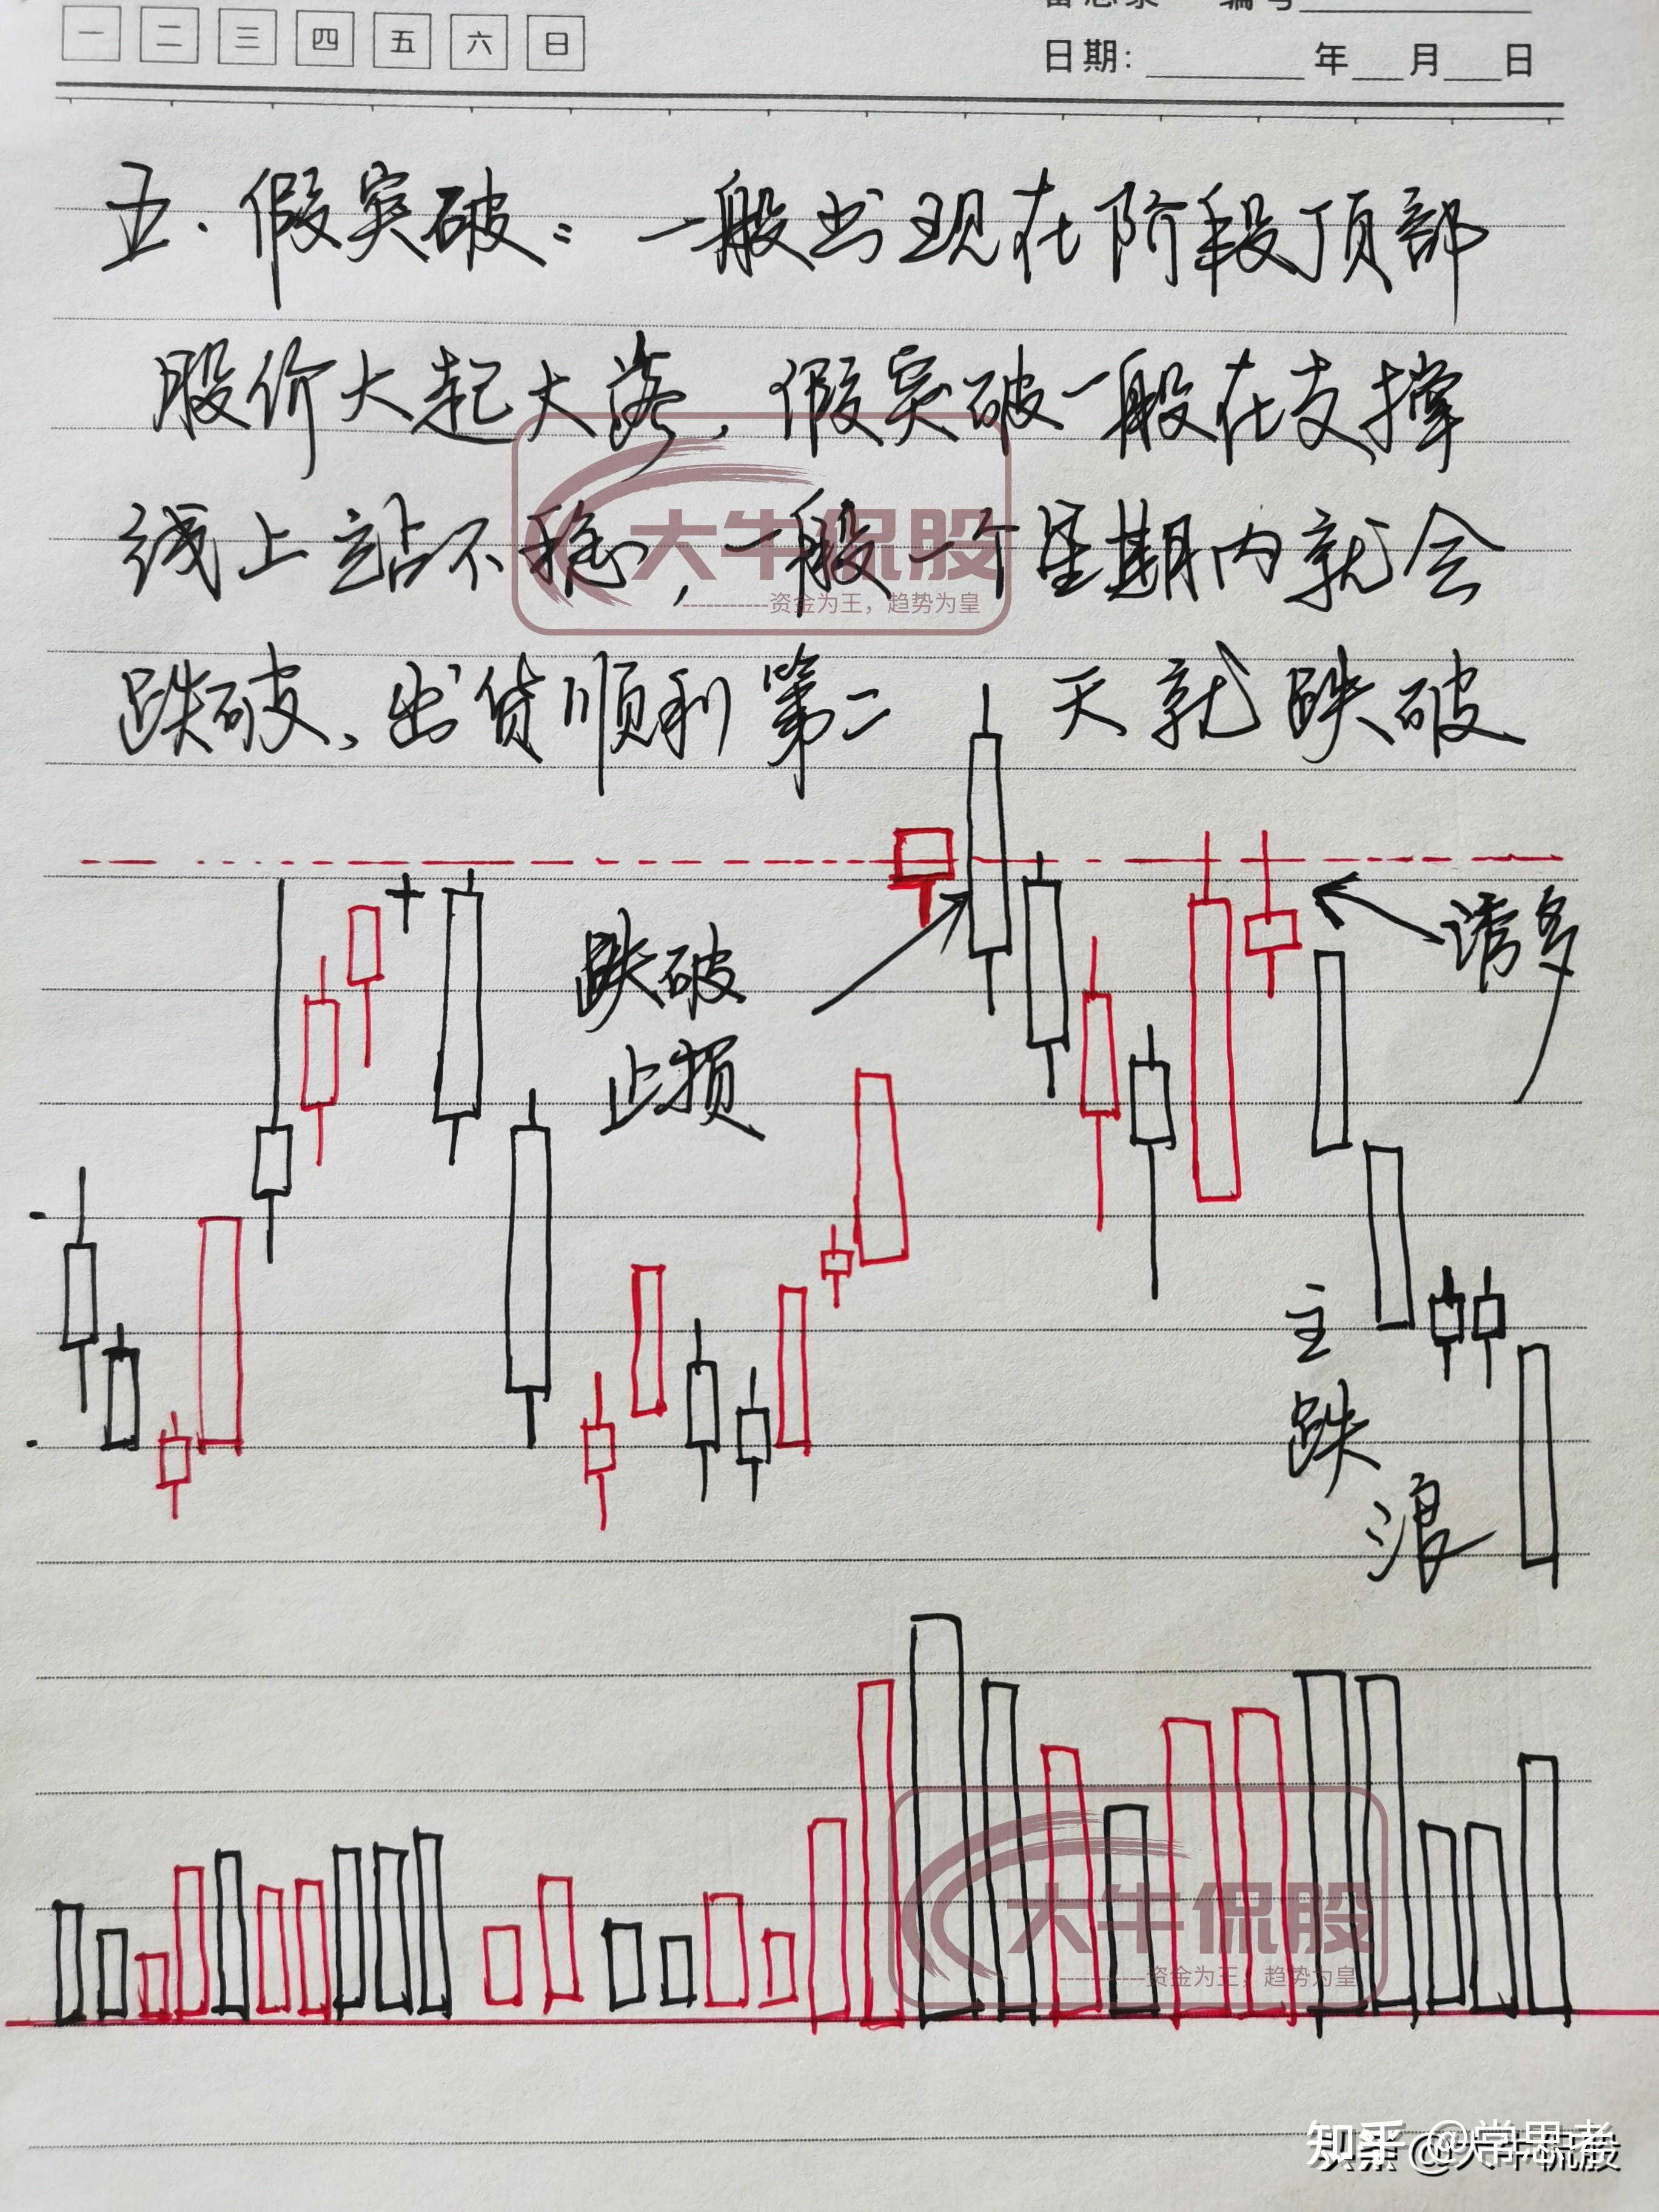 一 二 三 四 五 六 日
编号
日期: 年 月 日
五. 假突破: 一般出现在阶段顶部
股价大起大落, 假突破一般在支撑
线上站不稳, 一般一个星期内就会
跌破、出货顺利第二 天就跌破
大牛侃股
------------资金为王，趋势为皇
跌破
止损
诱多
主
跌
浪
大牛侃股
------------资金为王，趋势为皇
知乎 @学思者
头条 @大牛侃股